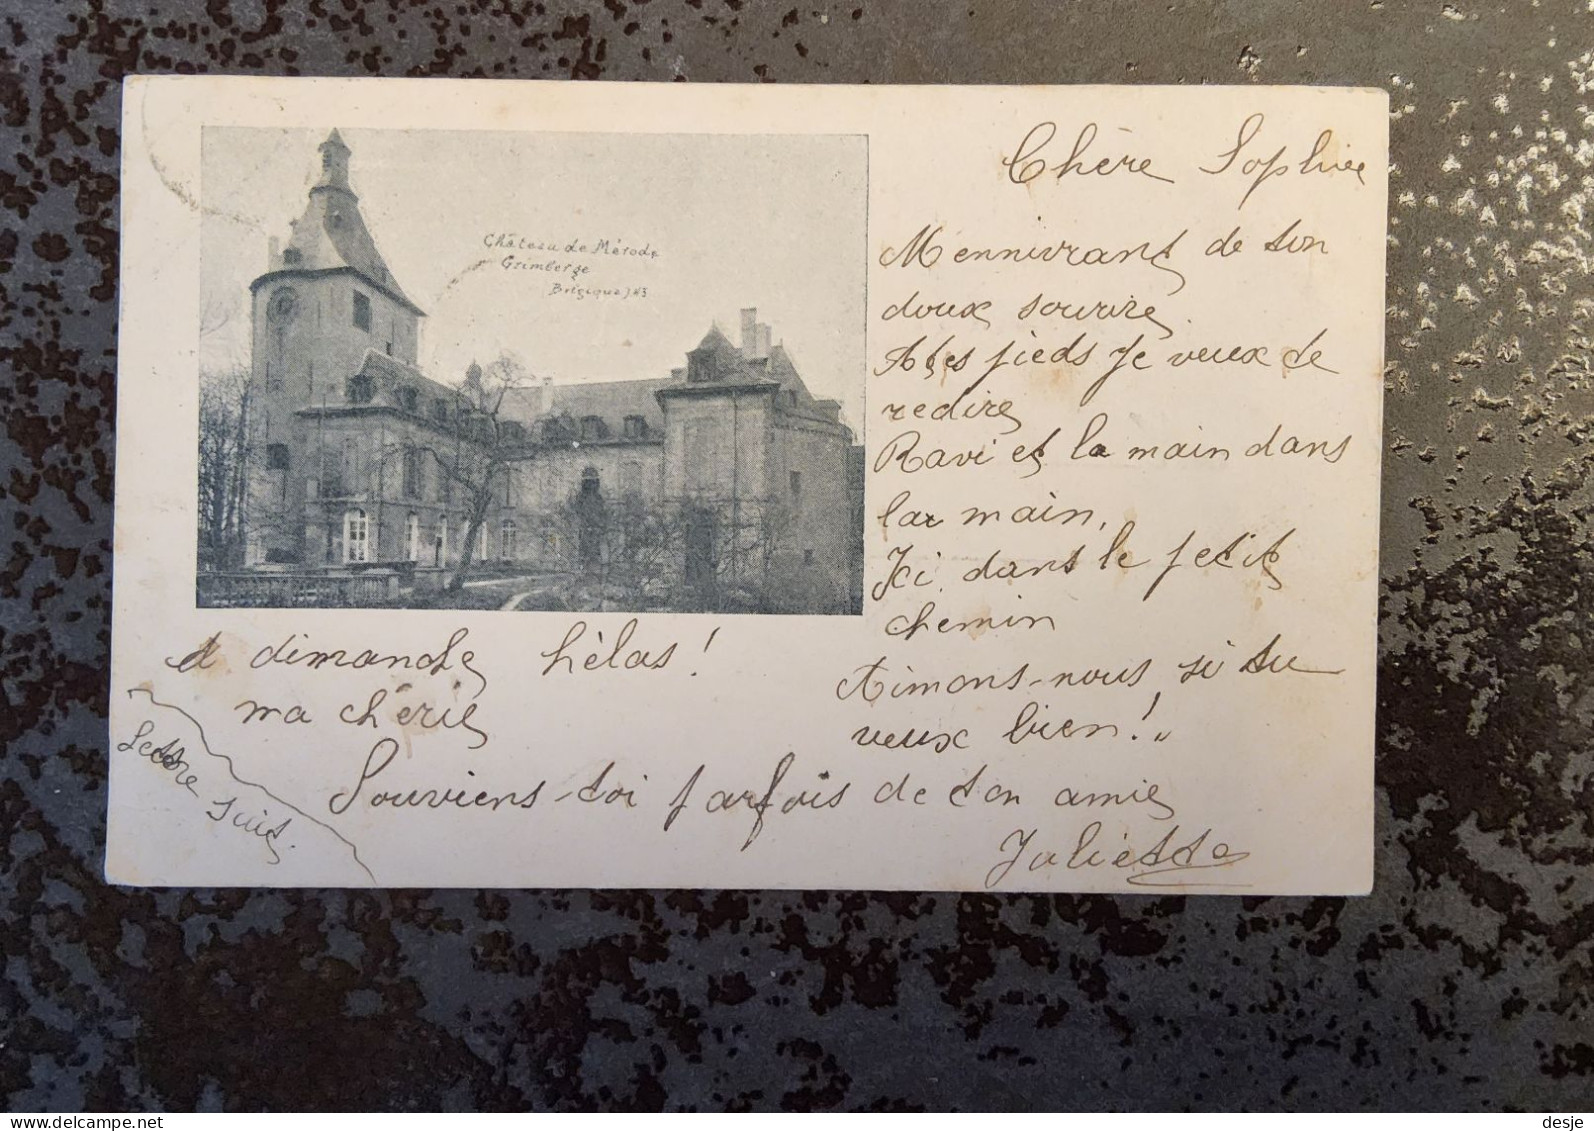 Château de Mérode
Grimberge
Chère Sophie
M'ennivrant de ton
doux sourire
A tes pieds Je veux te
redire
Ravi et la main dans
la main,
Ici, dans le petit
chemin
Aimons-nous si tu
veux bien!"
A dimanche hélas!
ma chérie
Souviens-toi parfois de ton amie
Juliette
Lettre suit.
www.delcampe.net
desje